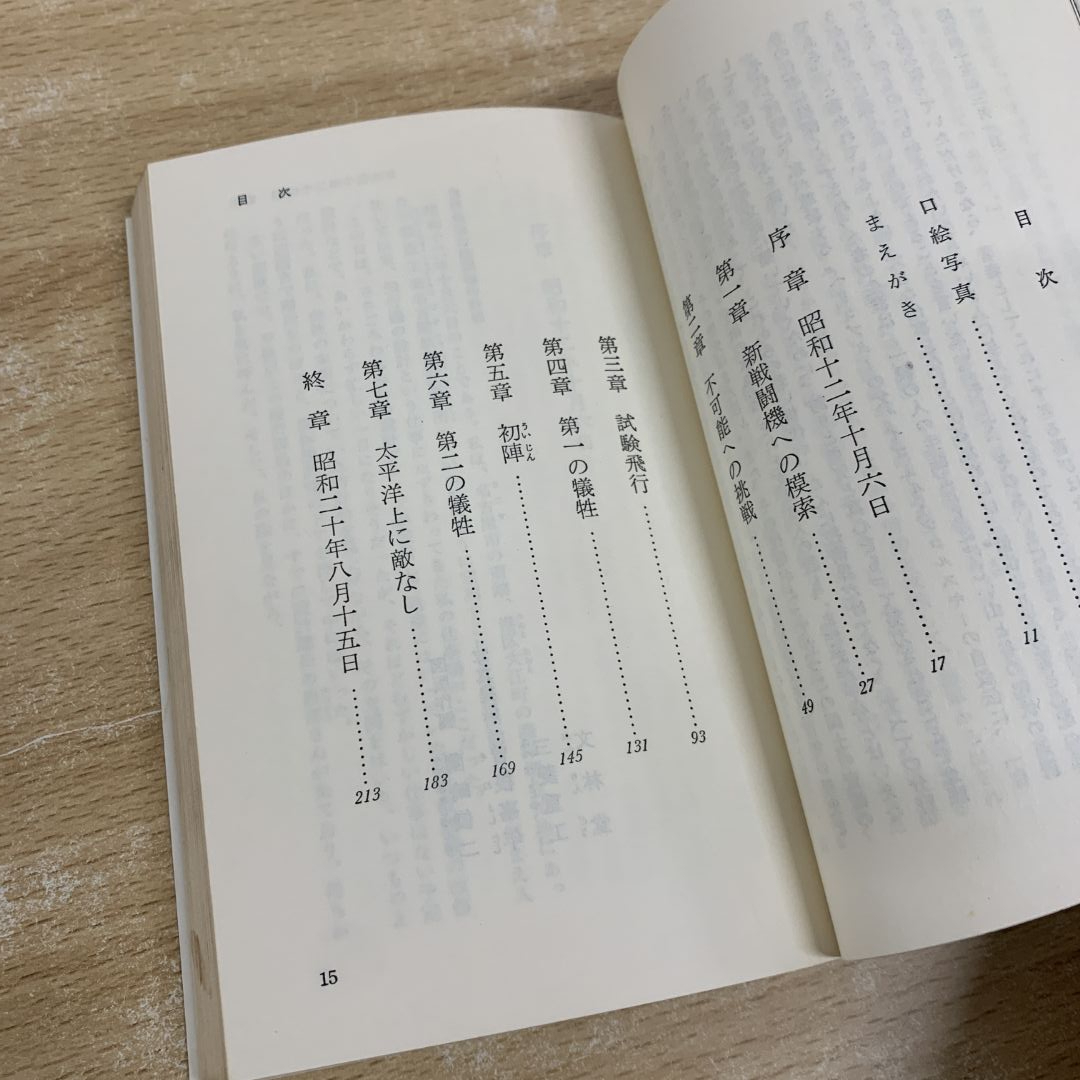 目次
口絵写真…………
まえがき…………11
序章 昭和十二年十月六日…………17
第一章 新戦闘機への模索…………27
第二章 不可能への挑戦…………49
目次
第三章 試験飛行…………93
第四章 第一の犠牲…………131
第五章 初陣…………145
ういじん
第六章 第二の犠牲…………169
第七章 太平洋上に敵なし…………183
終章 昭和二十年八月十五日…………213
15